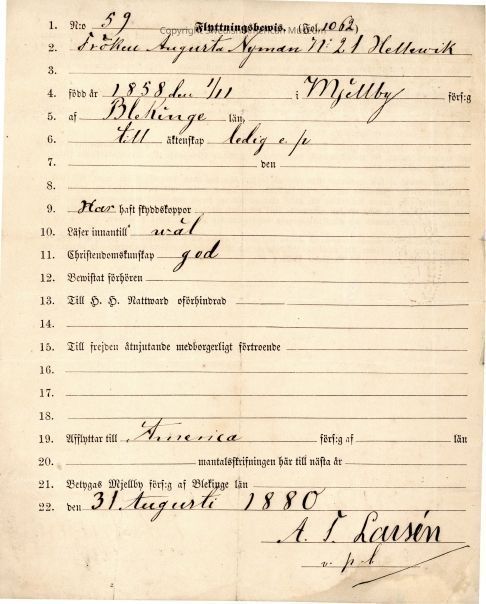 1. N:o 59 Flyttningsbewis. (Fol. 1062)
Copyright Swedish American Museum
2. Fröken Augusta Nyman N: 21 Hellewik
3.
4. född år 1858 den 1/11 i Mjellby förs:g
5. af Blekinge län,
6. till äktenskap ledig e. p
7. den
8.
9. Har haft skyddskoppor
10. Läser innantill wäl
11. Christendomskunskap god
12. Bewistat förhören
13. Till H. H. Nattward oförhindrad
14.
15. Till frejden åtnjutande medborgerligt förtroende
16.
17.
18.
19. Afflyttar till America förs:g af län
20. mantalsskrifningen här till nästa år
21. Betygas Mjellby förs:g af Blekinge län
22. den 31 Augusti 1880
A. T. Larsén
v. p.